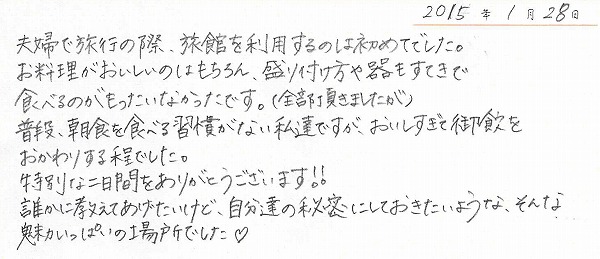 2015 年 1 月 28 日
夫婦で旅行の際、旅館を利用するのは初めてでした。
お料理がおいしいのはもちろん、盛り付け方や器もすてきで
食べるのがもったいなかったです。(全部頂きましたが)
普段、朝食を食べる習慣がない私達ですが、おいしすぎて御飲を
おかわりする程でした。
特別な二日間をありがとうございます!!
誰かに教えてあげたいけど、自分達の秘密にしておきたいような、そんな
魅力いっぱいの場所でした♡